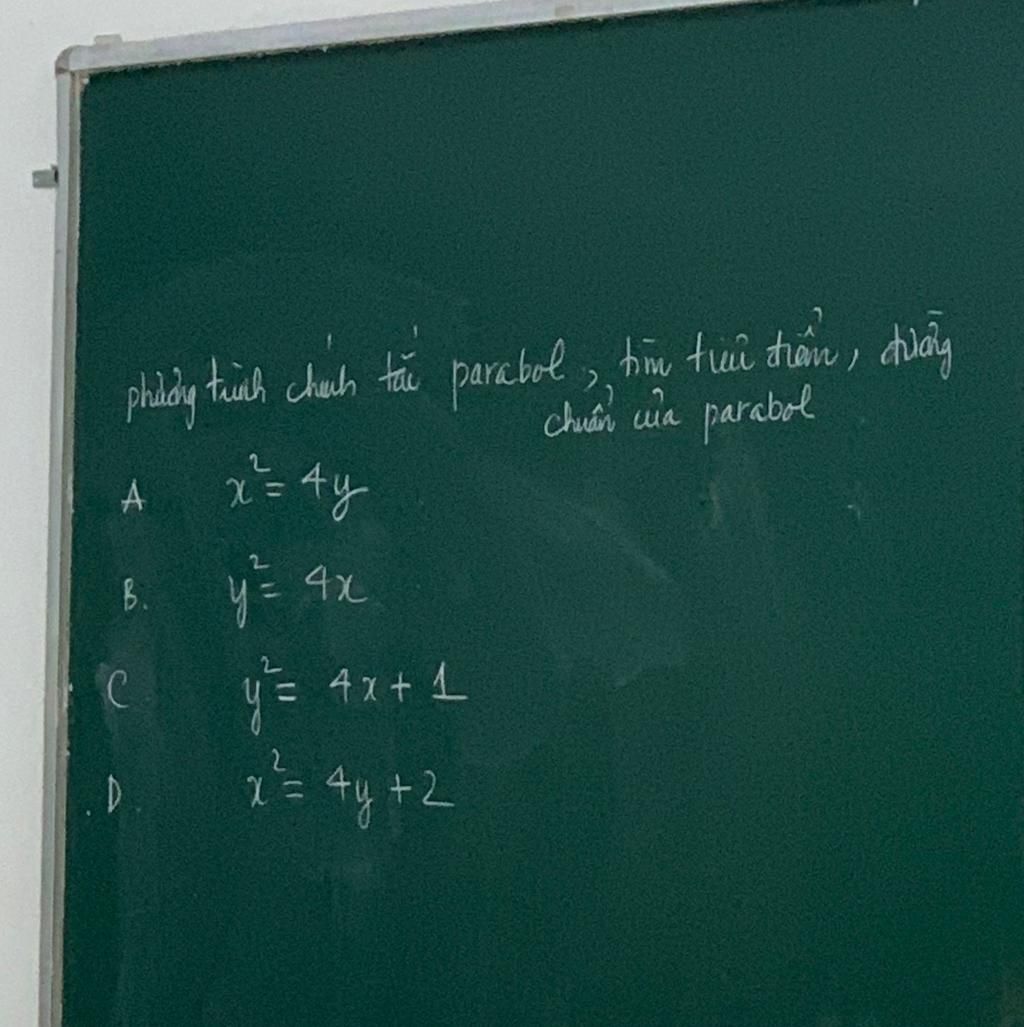 phương trình chính tắc parabol, tìm tiêu điểm, đường
chuẩn của parabol
A x² = 4y
B. y² = 4x
C y² = 4x + 1
.D. x² = 4y + 2